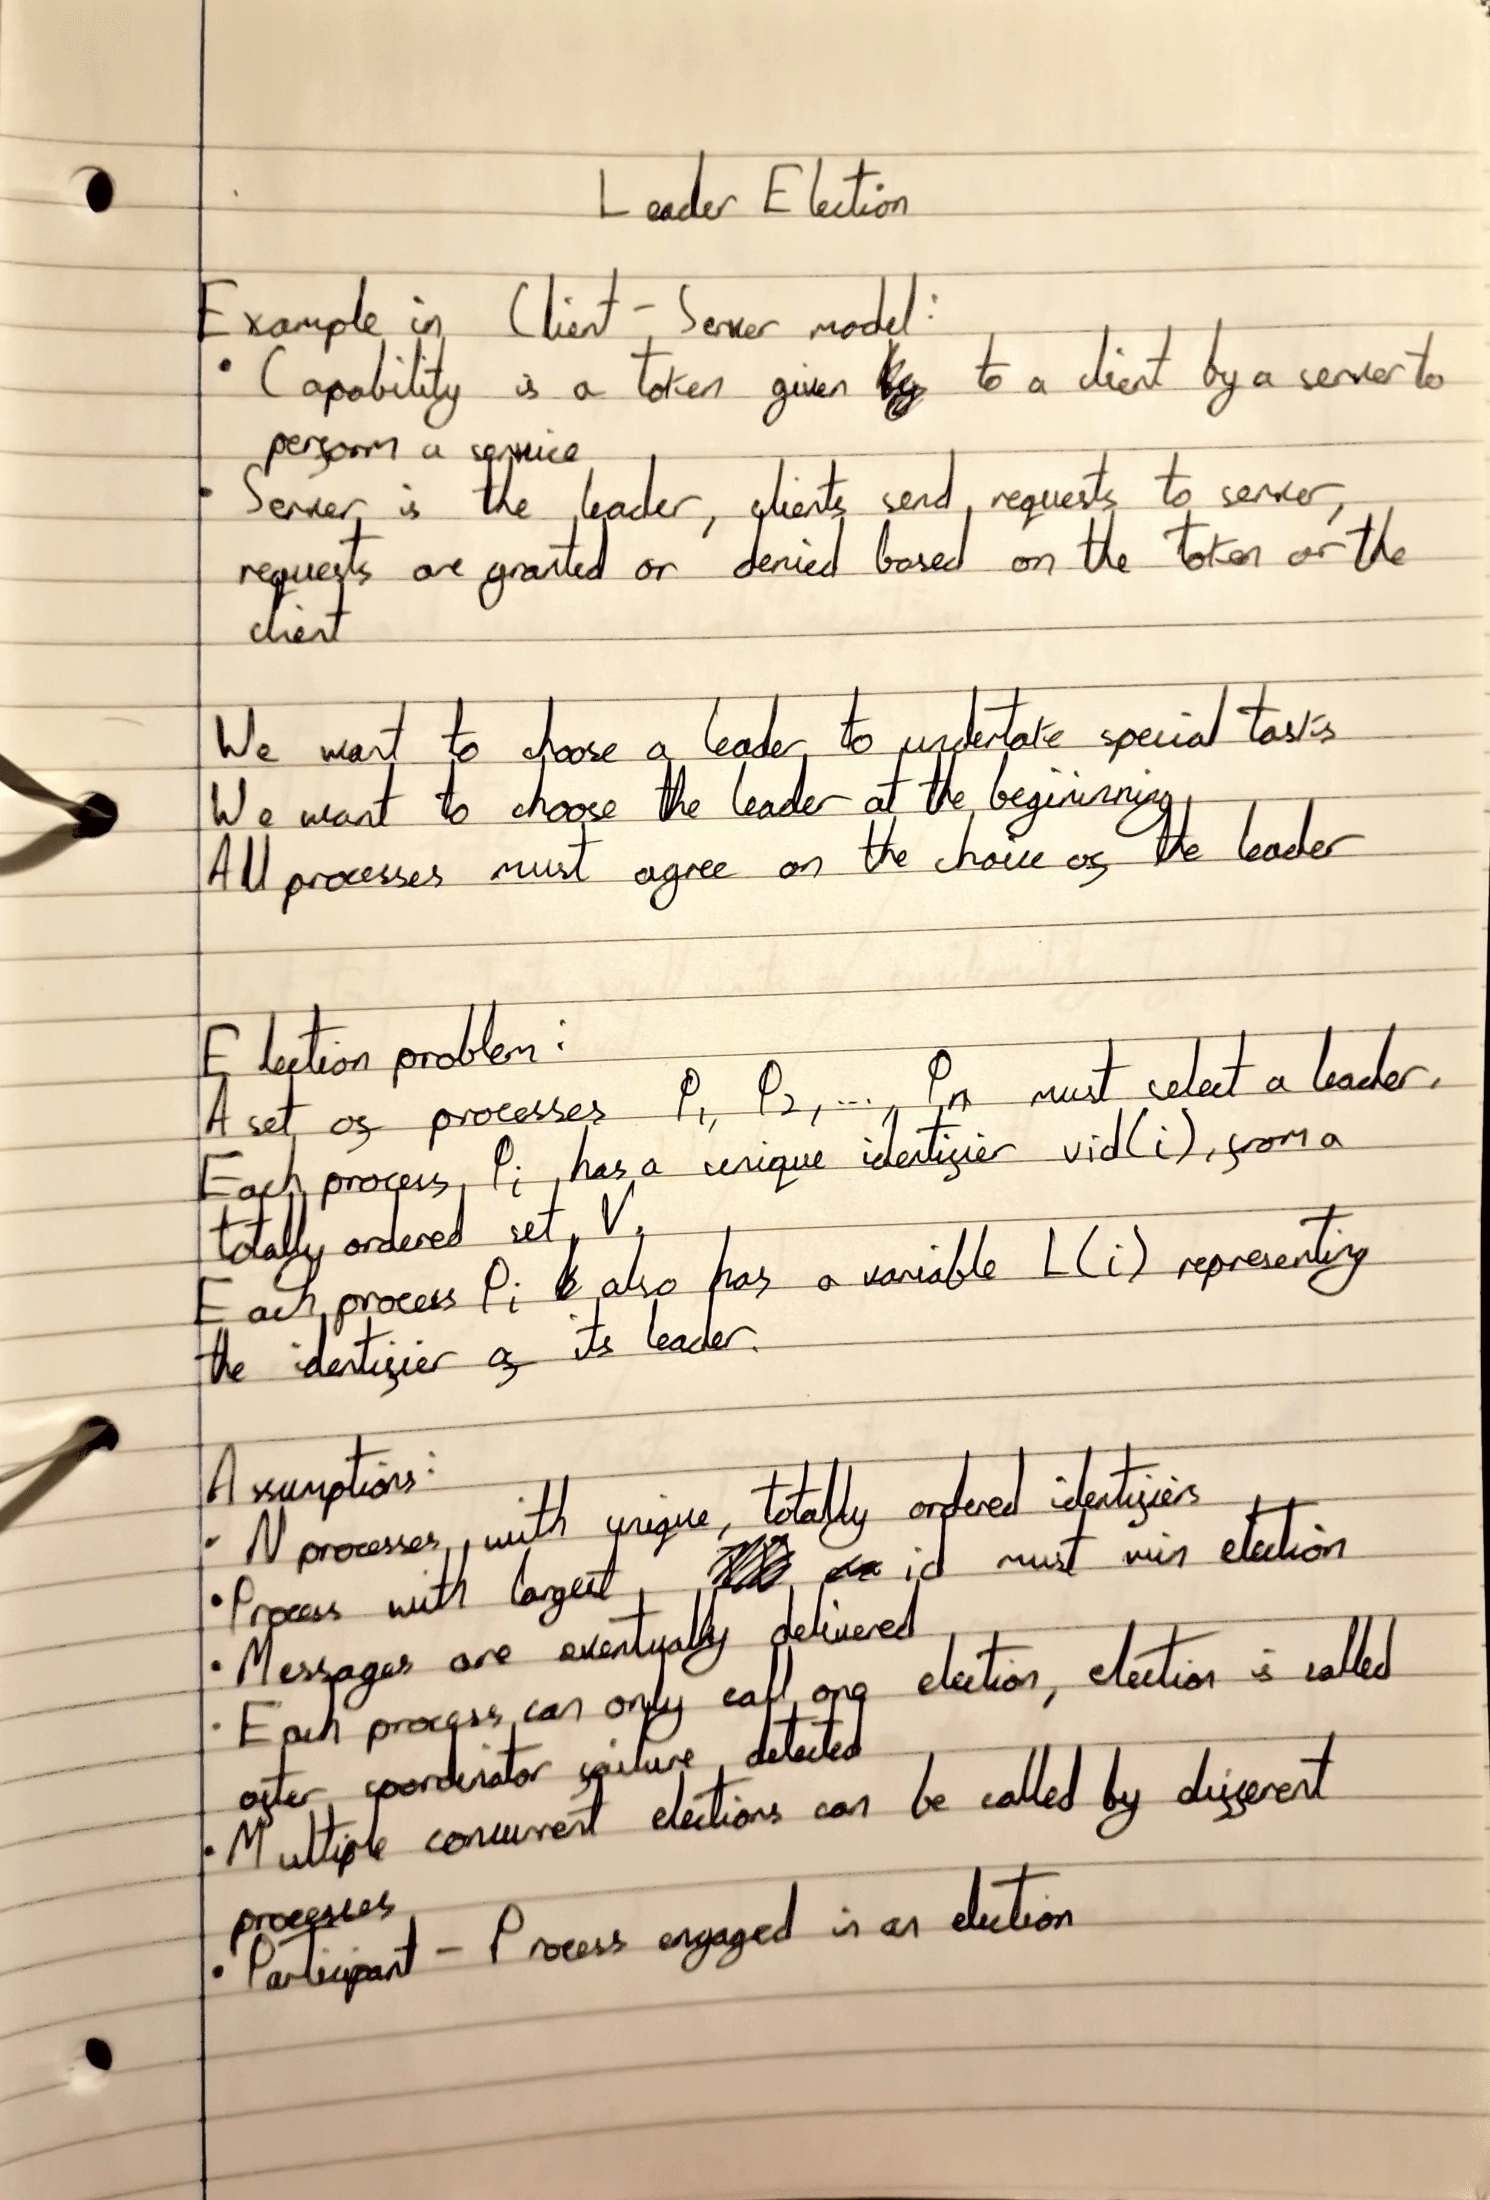 Leader Election
Example in Client - Server model:
• Capability is a token given to a client by a server to
perform a service
• Server is the leader, clients send requests to server,
requests are granted or denied based on the token or the
client
We want to choose a leader to undertake special tasks
We want to choose the leader at the beginning
All processes must agree on the choice of the leader
Election problem:
A set of processes P₁, P₂, ..., Pₙ must select a leader.
Each process Pᵢ has a unique identifier vid(i), from a
totally ordered set V.
Each process Pᵢ also has a variable L(i) representing
the identifier of its leader.
Assumptions:
• N processes with unique, totally ordered identifiers
• Process with largest id must win election
• Messages are eventually delivered
• Each process can only call one election, election is called
after coordinator failure detected
• Multiple concurrent elections can be called by different
processes
• Participant - Process engaged in an election